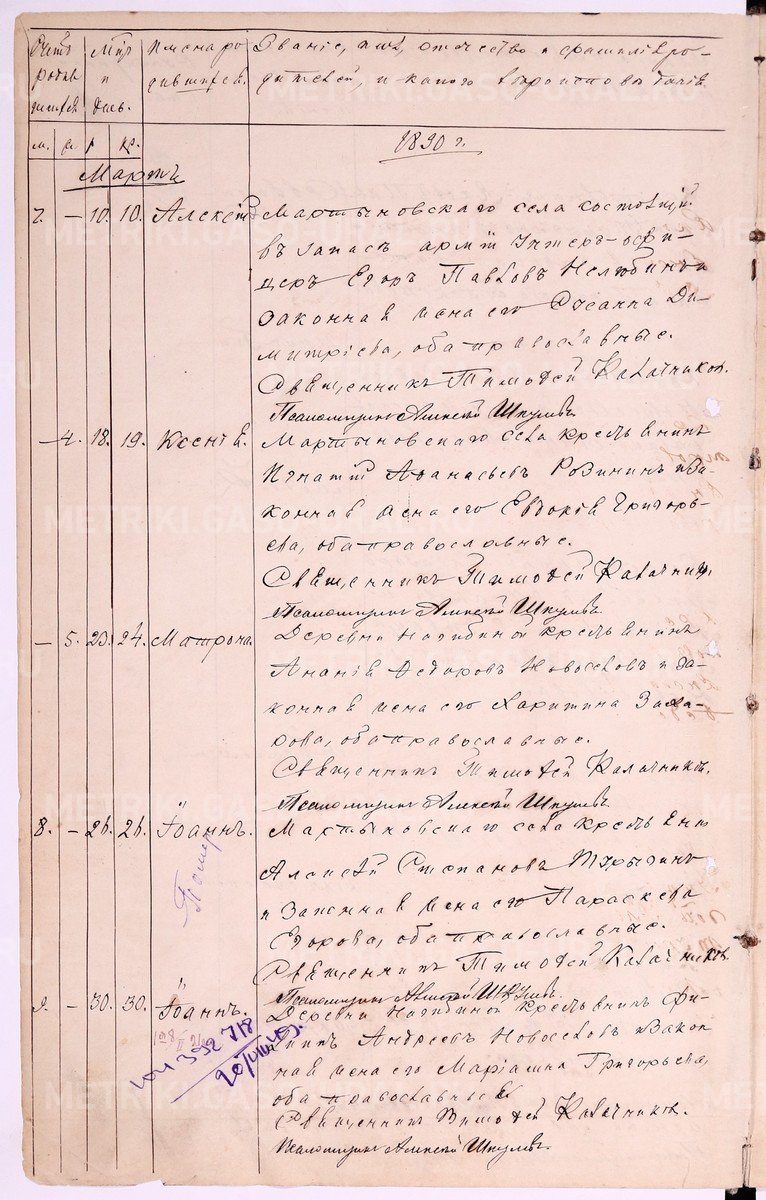 Счетъ родившихся.
Мѣс. и день.
Имена родившихся.
Званіе, имя, отчество и фамилія ро-
дителей, и какого вѣроисповѣданія.
м. ж. р кр.
1890 г.
Мартъ
7. — 10. 10. Алексѣй
Мартыновскаго села состоящій
въ запасѣ арміи Унтеръ-офи-
церъ Егоръ Павловъ Нелюбинъ и
законная жена его Сусанна Ди-
митріева, оба православные.
Священникъ Тимоѳей Калачниковъ.
Псаломщикъ Алексѣй Шкулевъ.
— 4. 18. 19. Ксенія.
Мартыновскаго села крестьянинъ
Игнатій Аѳанасьевъ и за-
конная жена его Евдокія Григорь-
ева, оба православные.
Священникъ Тимоѳей Калачник
Псаломщикъ Алексѣй Шкулевъ.
— 5. 23. 24. Матрона.
Деревни крестьянинъ
Ананія Ѳедоровъ Новоселовъ и за-
конная жена его Харитина Заха-
рова, оба православные.
Священникъ Тимоѳей Калачниковъ.
Псаломщикъ Алексѣй Шкулевъ.
8. — 26. 26. Іоаннъ.
Мартыновскаго села крестьянинъ
Алексѣй Степановъ и законная жена его Параскева
Егорова, оба православные.
Священникъ Тимоѳей Калачниковъ
Псаломщикъ Алексѣй Шкулевъ.
9. — 30. 30. Іоаннъ.
Деревни крестьянинъ Фи-
липпъ Андреевъ Новоселовъ и закон-
ная жена его Маріамна Григорьева,
оба православные
Священникъ Тимоѳей Калачниковъ.
Псаломщикъ Алексѣй Шкулевъ.
Помер
392718
METRIKI.GA